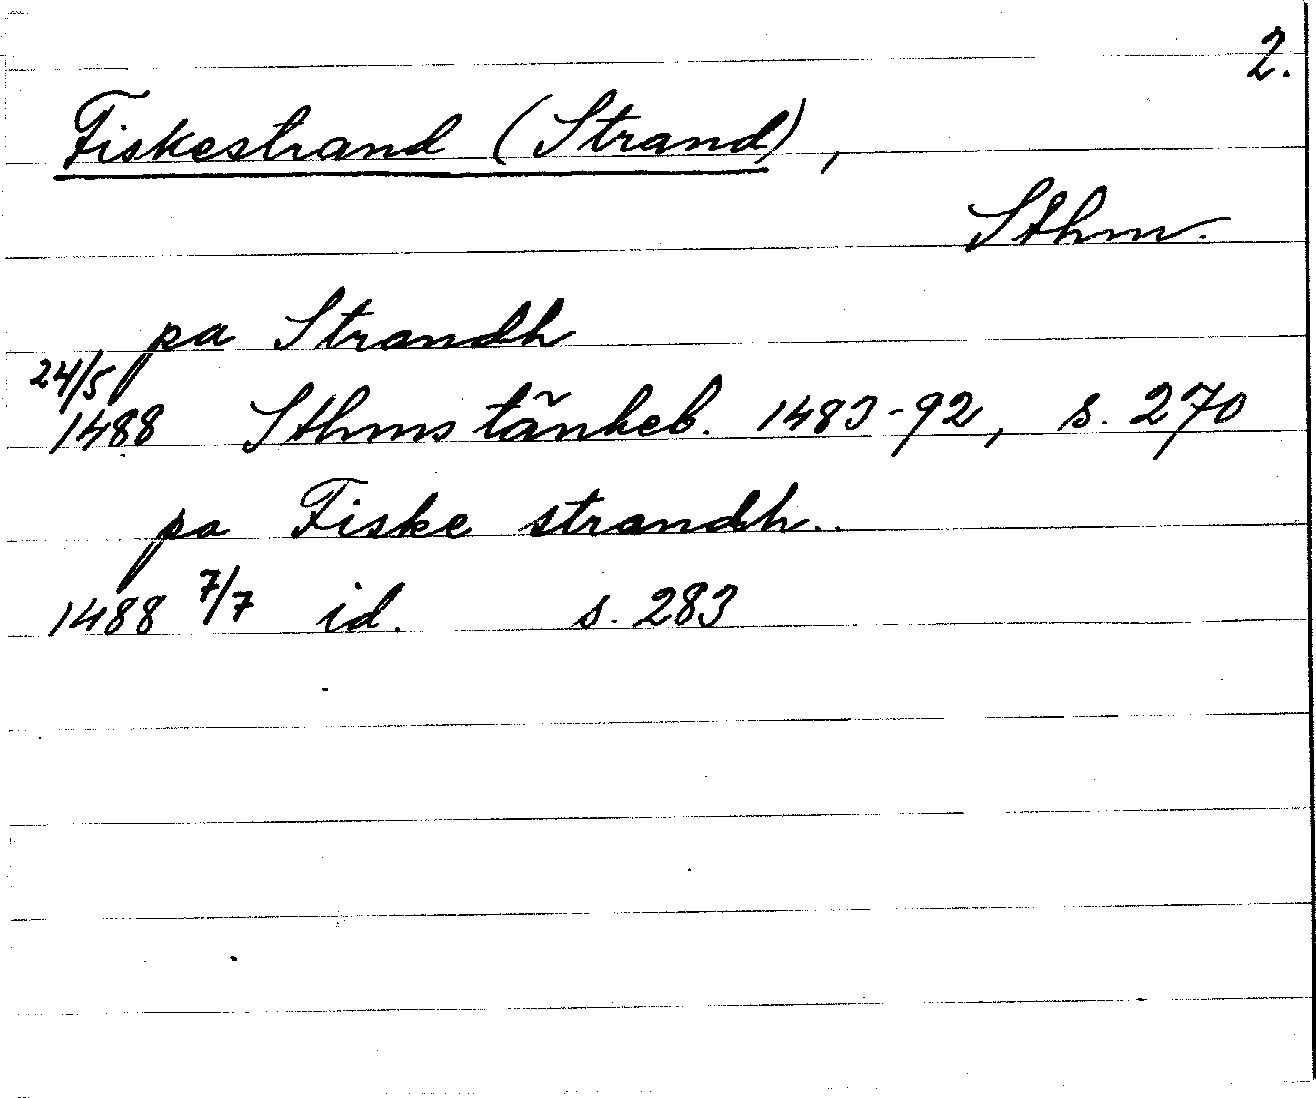 2.
Fiskestrand (Strand),
Sthm.
pa Strandh
24/5
1488 Sthms tänkeb. 1483-92, s. 270
pa Fiske strandh..
1488 7/7 id. s. 283